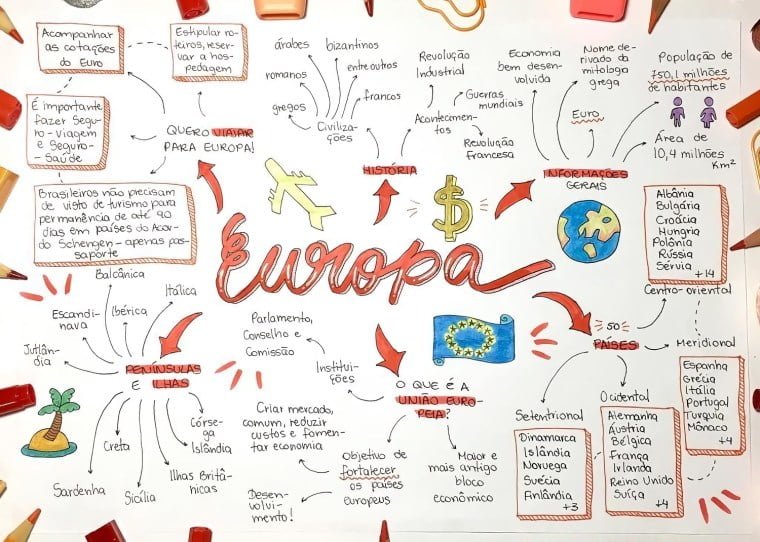 Acompanhar
as cotações
do Euro
Estipular ro-
teiros, reser-
var a hos-
pedagem
É importante
fazer Segu-
ro-viagem
e Seguro-
-Saúde
QUERO VIAJAR
PARA EUROPA!
Brasileiros não precisam
de visto de turismo para
permanência de até 90
dias em países do Acor-
do Schengen - apenas pas-
saporte
árabes
bizantinos
romanos
entre outros
gregos
francos
Civiliza-
ções
Revolução
Industrial
Guerras
mundiais
Acontecimen-
tos
Revolução
Francesa
HISTÓRIA
Economia
bem desen-
volvida
Nome de-
rivado da
mitologia
grega
População de
750,1 milhões
de habitantes
Euro
Área de
10,4 milhões
Km²
INFORMAÇÕES
GERAIS
$
Europa
Albânia
Bulgária
Croácia
Hungria
Polônia
Rússia
Sérvia
+14
Centro-oriental
50
PAÍSES
Meridional
Espanha
Grécia
Itália
Portugal
Turquia
Mônaco
+4
Ocidental
Alemanha
Áustria
Bélgica
França
Irlanda
Reino Unido
Suíça
+4
Setentrional
Dinamarca
Islândia
Noruega
Suécia
Finlândia
+3
Balcânica
Itálica
Escandi-
nava
Ibérica
Jutlân-
dia
PENÍNSULAS
E ILHAS
Córse-
ga
Islândia
Creta
Ilhas Britâ-
nicas
Sardenha
Sicília
Parlamento,
Conselho e
Comissão
Institui-
ções
O QUE É A
UNIÃO EURO-
PEIA?
Criar mercado,
comum, reduzir
custos e fomen-
tar economia
Objetivo de
fortalecer
os países
europeus
Desen-
volvi-
mento!
Maior e
mais antigo
bloco
econômico